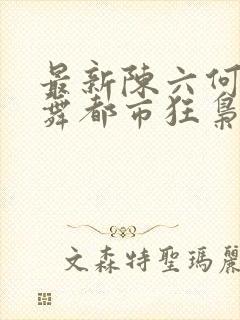 最新陳六何
舞都市狂梟
文森特聖瑪麗